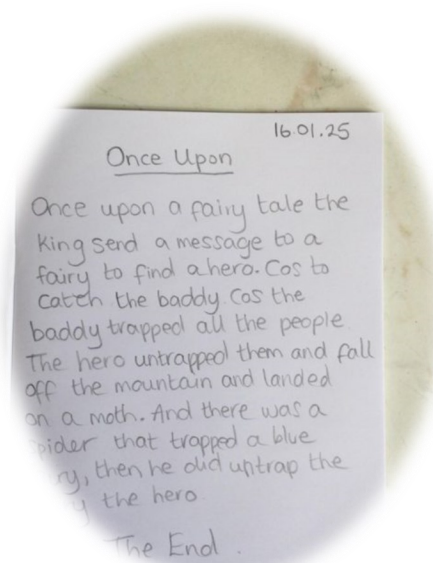 16.01.25
Once Upon
Once upon a fairy tale the
King send a message to a
fairy to find a hero. Cos to
catch the baddy. Cos the
baddy trapped all the people
The hero untrapped them and fall
off the mountain and landed
on a moth. And there was a
spider that trapped a blue
then he did untrap the
the hero
The End.